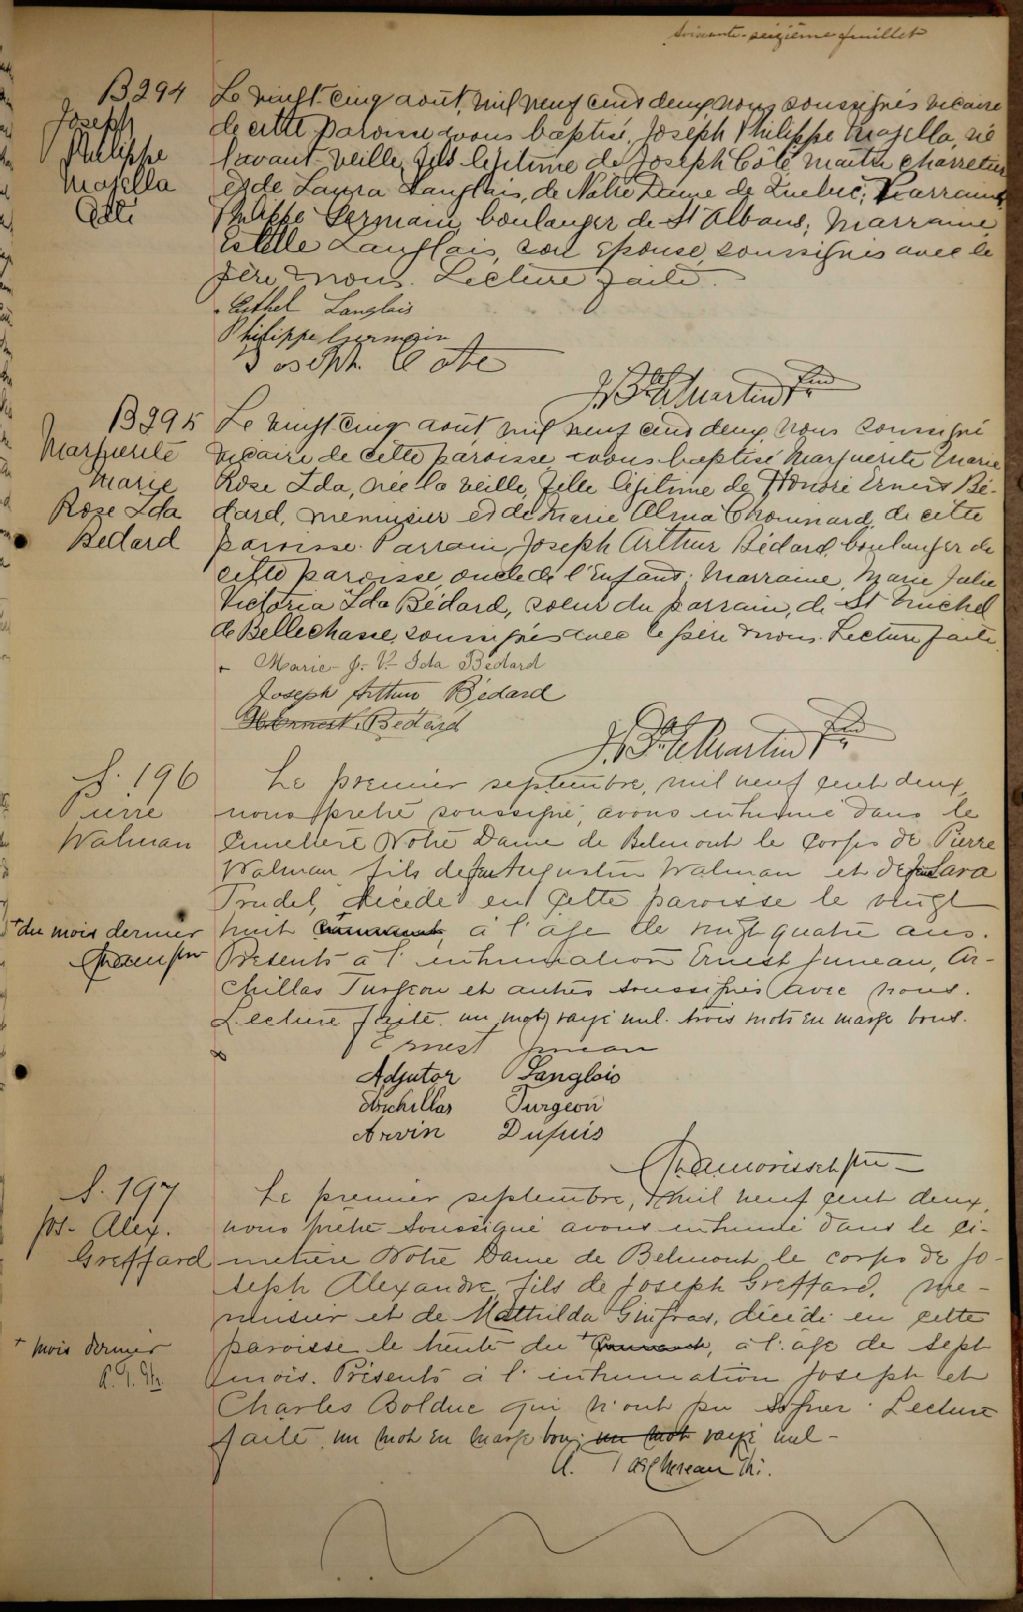 Soixante-seizième feuillet
B294
Joseph
Philippe
Majella
Côté
Le vingt-cinq août, mil neuf cent deux, nous soussignés vicaire
de cette paroisse avons baptisé, Joseph Philippe Majella, né
l'avant-veille, fils légitime de Joseph Côté, maître charretier
et de Laura Langlais, de Notre Dame de Québec; Parrain,
Philippe Germain, boulanger de St Albans; Marraine,
Estelle Langlais, son épouse, soussignés avec le
père & nous. Lecture faite.
Esthel Langlais
Philippe Germain
Joseph. Cote
J. Bte E. Martin
B295
Marguerite
Marie
Rose Ida
Bédard
Le vingt cinq août, mil neuf cent deux, nous soussigné
vicaire de cette paroisse avons baptisé Marguerite Marie
Rose Ida, née la veille, fille légitime de Honoré Ernest Bé-
dard, menuisier et de Marie Alma Chouinard, de cette
paroisse. Parrain, Joseph Arthur Bédard, boulanger de
cette paroisse, oncle de l'Enfant; Marraine, Marie Julie
Victoria Ida Bédard, sœur du parrain, de St Michel
de Bellechasse, soussignés avec le père & nous. Lecture faite.
+ Marie-J.-V-Ida Bédard
Joseph Arthur Bédard
H. Ernest Bédard
J. Bte E. Martin
S. 196
Pierre
Walman
Le premier septembre, mil neuf cent deux,
nous prêtre soussigné, avons inhumé dans le
cimetière Notre Dame de Belmont le corps de Pierre
Walman fils de feu Augustin Walman et de feue Sara
Trudel, décédé en cette paroisse le vingt
+ du mois dernier
huit courant, à l'âge de vingt quatre ans.
Présents à l'inhumation Ernest Juneau, Ar-
chillas Turgeon et autres soussignés avec nous.
Lecture faite. un mot rayé nul. trois mots en marge bons.
Ernest Juneau
Adjutor Langlois
Archillas Turgeon
Arvin Dupuis
Ph. Amorisset ptre
S. 197
Jos- Alex.
Greffard
Le premier septembre, mil neuf cent deux,
nous prêtre soussigné avons inhumé dans le ci-
metière Notre Dame de Belmont le corps de Jo-
seph Alexandre, fils de Joseph Greffard, me-
nuisier et de Mathilda Guifras, décédé en cette
+ mois dernier
paroisse le trente du + courant, à l'âge de sept
mois. Présents à l'inhumation Joseph et
Charles Bolduc qui n'ont pu signer. Lecture
faite. un mot en marge bon; un mot rayé nul-
A. Taschereau